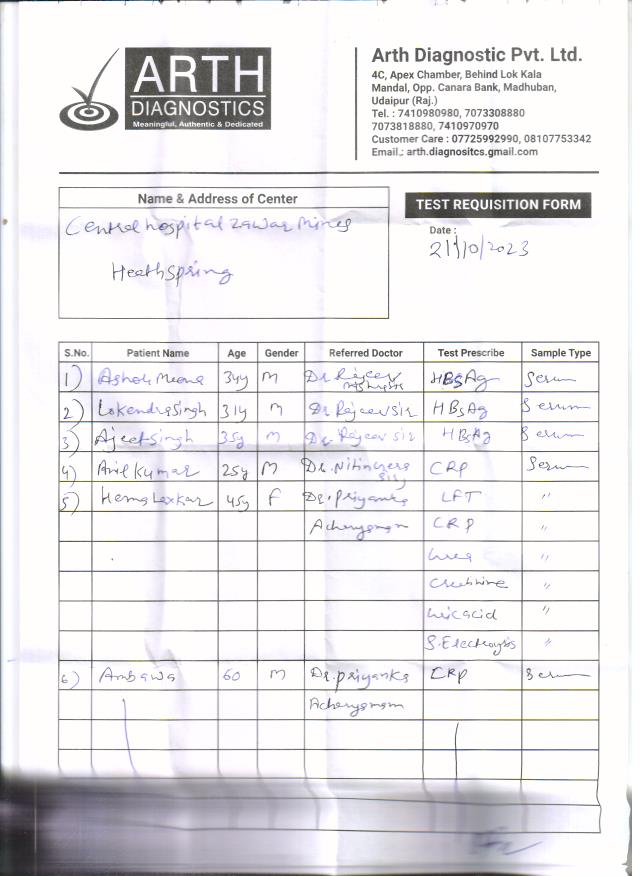 ARTH
DIAGNOSTICS
Meaningful, Authentic & Dedicated
Arth Diagnostic Pvt. Ltd.
4C, Apex Chamber, Behind Lok Kala
Mandal, Opp. Canara Bank, Madhuban,
Udaipur (Raj.)
Tel. : 7410980980, 7073308880
7073818880, 7410970970
Customer Care : 07725992990, 08107753342
Email.: arth.diagnositcs.gmail.com
Name & Address of Center
Central hospital zawar mines
Heathspring
TEST REQUISITION FORM
Date :
21/10/2023
S.No. Patient Name Age Gender Referred Doctor Test Prescribe Sample Type
1) Ashok Meena 34y M Dr. Rajeev HBsAg Serum
2) Lokendra singh 31y M Dr Rajeev sir HBsAg Serum
3) Ajeet singh 35y M Dr. Rajeev sir HBsAg Serum
4) Anil Kumar 25y M Dr. Nitin sir CRP Serum
5) Hema Laxkar 45y F Dr. Priyanka LFT "
CRP "
Urea "
Creatinine "
Uric acid "
S. Electrolytes "
6) Ambawa 60 M Dr. priyanka CRP Serum